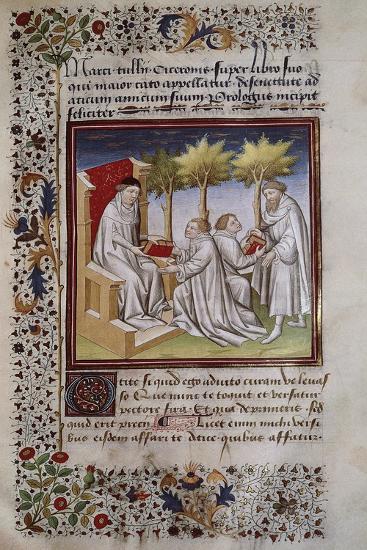 Marci tullii Ciceronis super libro suo
qui maior cato appellatur de senectute ad
aticum amicum suum Prologhus incipit
feliciter
O tite si quid ego adiuto curam ve levas
so Que nunc te coquit et versat
pectore fixa Et qua deprimeris sed
quid erit precii Licet enim michi versi
bus eisdem affari te attice quibus affatur